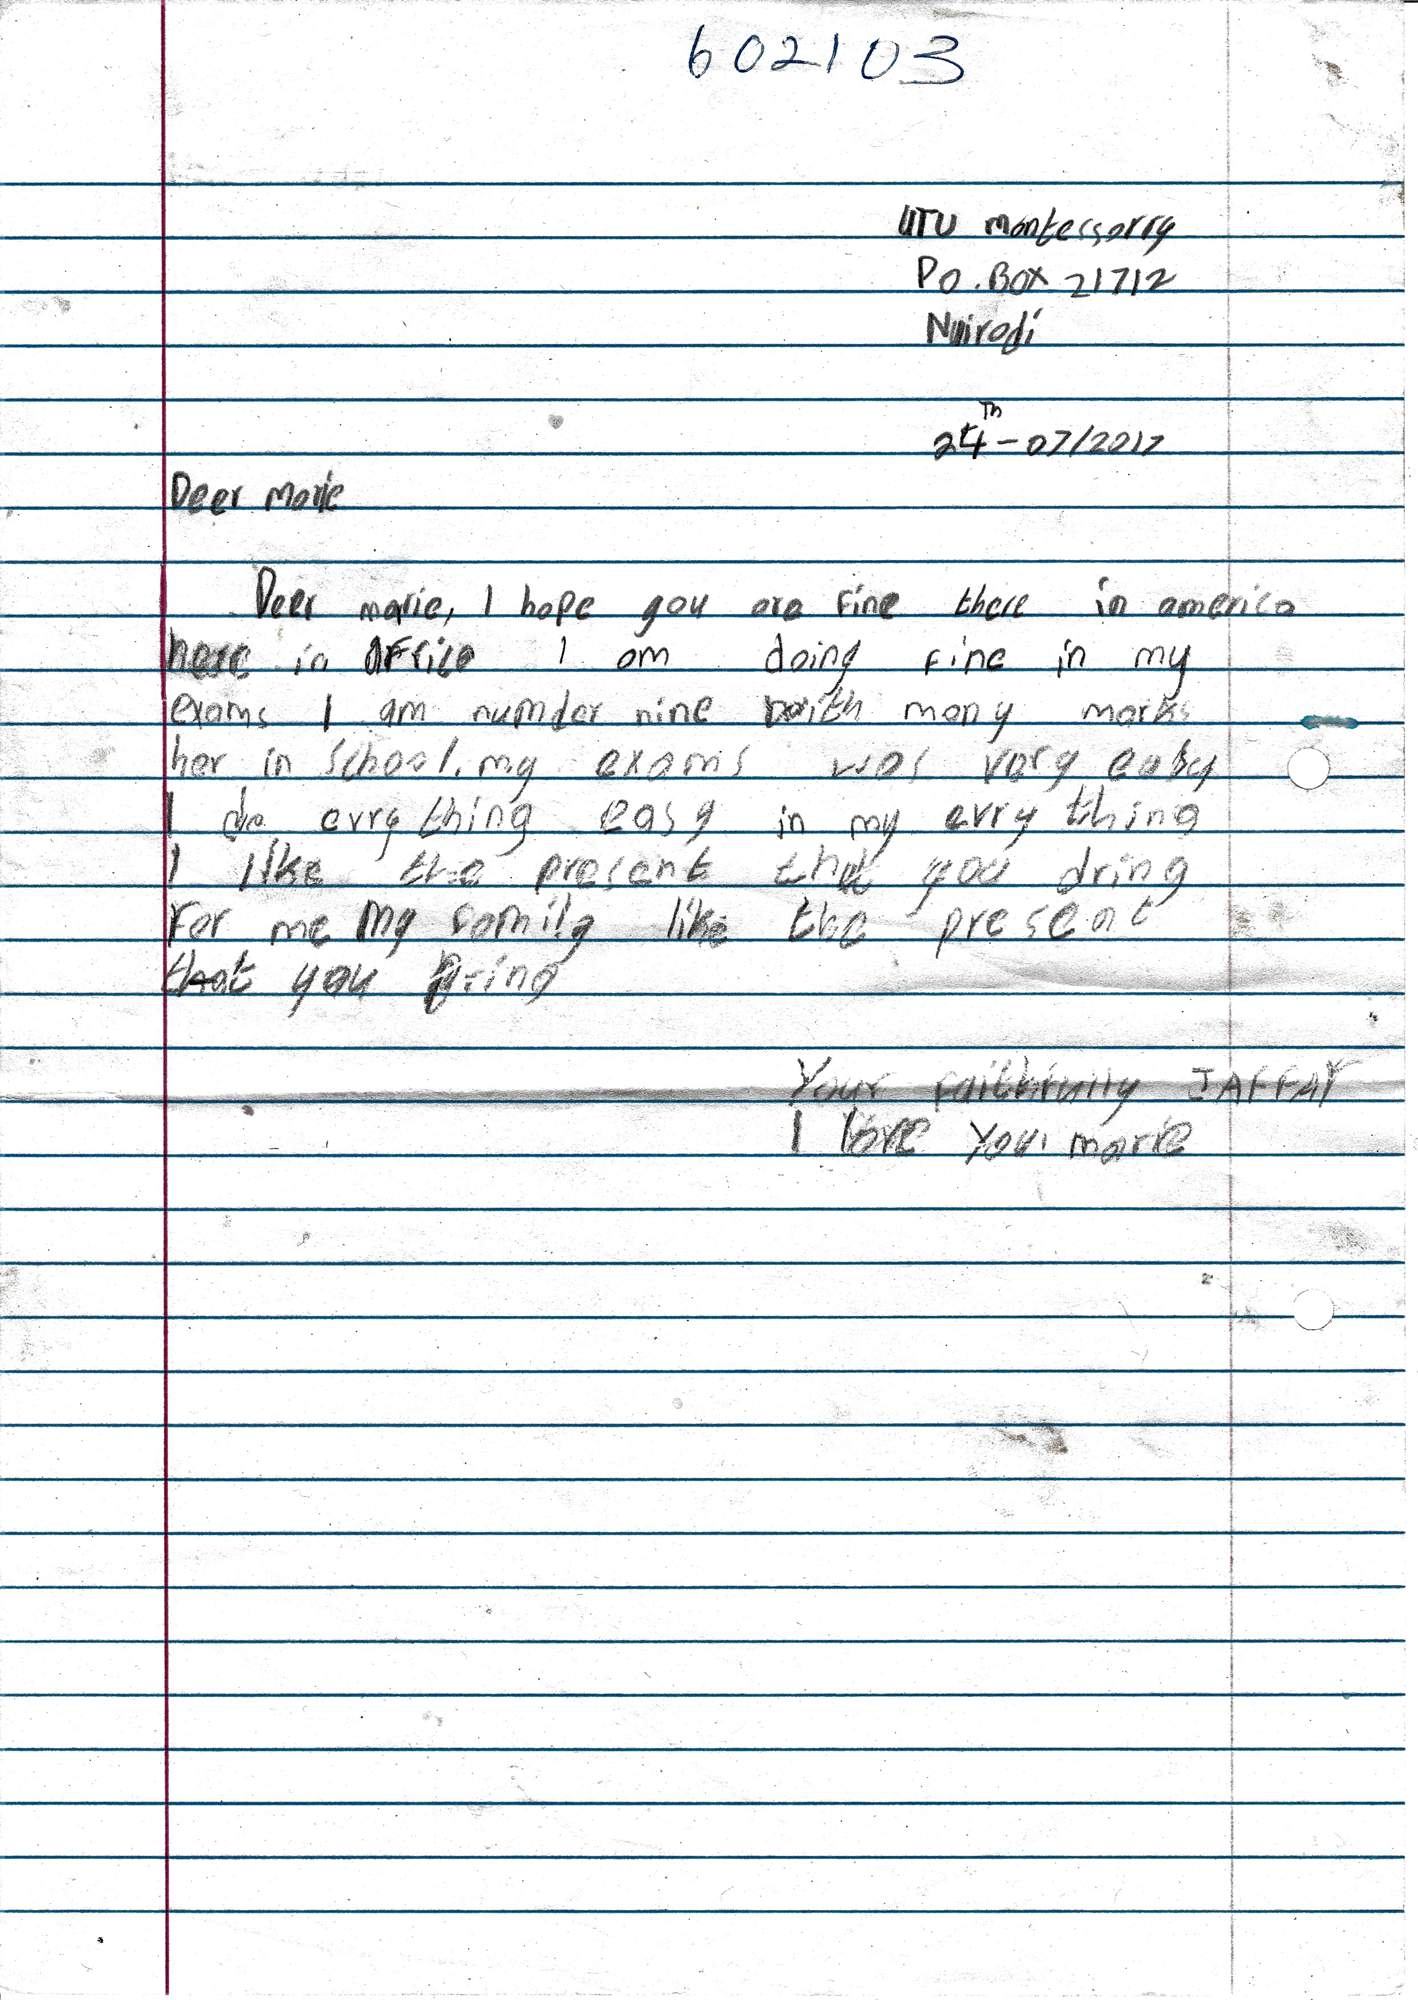 602103
UTU montessorry
Po. Box 21712
Nairodi
24th - 07/2017
Deer marie
Deer marie, I hope you are fine there in america
here in Africa I am doing fine in my
exams I am numder nine with many marks
her in school. my exams was very easy
I do evry thing easy in my evry thing
I like the present that you dring
For me my family like the present
that you bring
Your faithfully JAFFAR
I love you marie